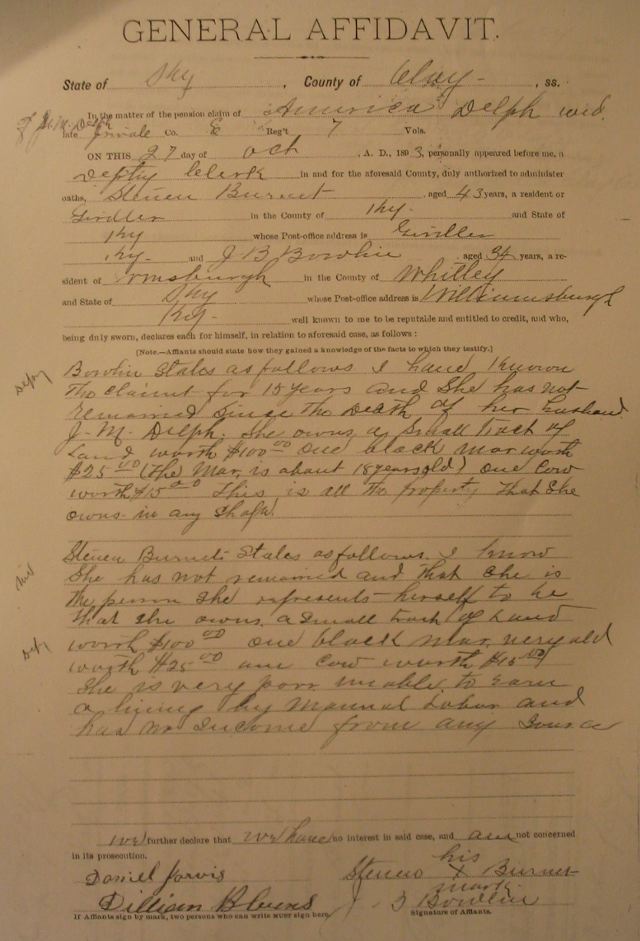 GENERAL AFFIDAVIT.
State of Ky, County of Clay, ss.
In the matter of the pension claim of America Delph wid.
of J. M. Delph
late private Co. E Reg't 7 Vols.
ON THIS 27 day of Oct, A. D., 1893, personally appeared before me, a
Depty Clerk in and for the aforesaid County, duly authorized to administer
oaths, Steven Burnet, aged 43 years, a resident or
Girdler in the County of Ky. and State of
Ky whose Post-office address is Girdler
Ky. and J B Bowlin aged 34 years, a re-
sident of in the County of Whitley
and State of Ky whose Post-office address is Williamsburgh
Ky. well known to me to be reputable and entitled to credit, and who,
being duly sworn, declares each for himself, in relation to aforesaid case, as follows:
[Note.—Affiants should state how they gained a knowledge of the facts to which they testify.]
Bowlin States as follows I have Known
Tho claimt for 15 years and She has not
remaried Since Tho Death of her husband
J. M. Delph. She owns a Small Tract of
Land worth $100 00 One black Mar worth
$25 00 (the Mar is about 18 years old) One Cow
worth $15 00 This is all Tho property That She
owns in any Shape.
Steven Burnet States as follows. I know
She has not remaried and that she is
the person She represents herself to be
that she owns a Small track of Land
worth $100 00 one black Mar very old
worth $25 00 one Cow worth $15 00
She is very poor unable to Earn
a living by Manual Labor and
has no Income from any Source
we further declare that we have no interest in said case, and are not concerned
in its prosecution.
Daniel Jarvis
his
Steven X Burnet
mark
J. B Bowlin
If Affiants sign by mark, two persons who can write must sign here.
Signature of Affiants.